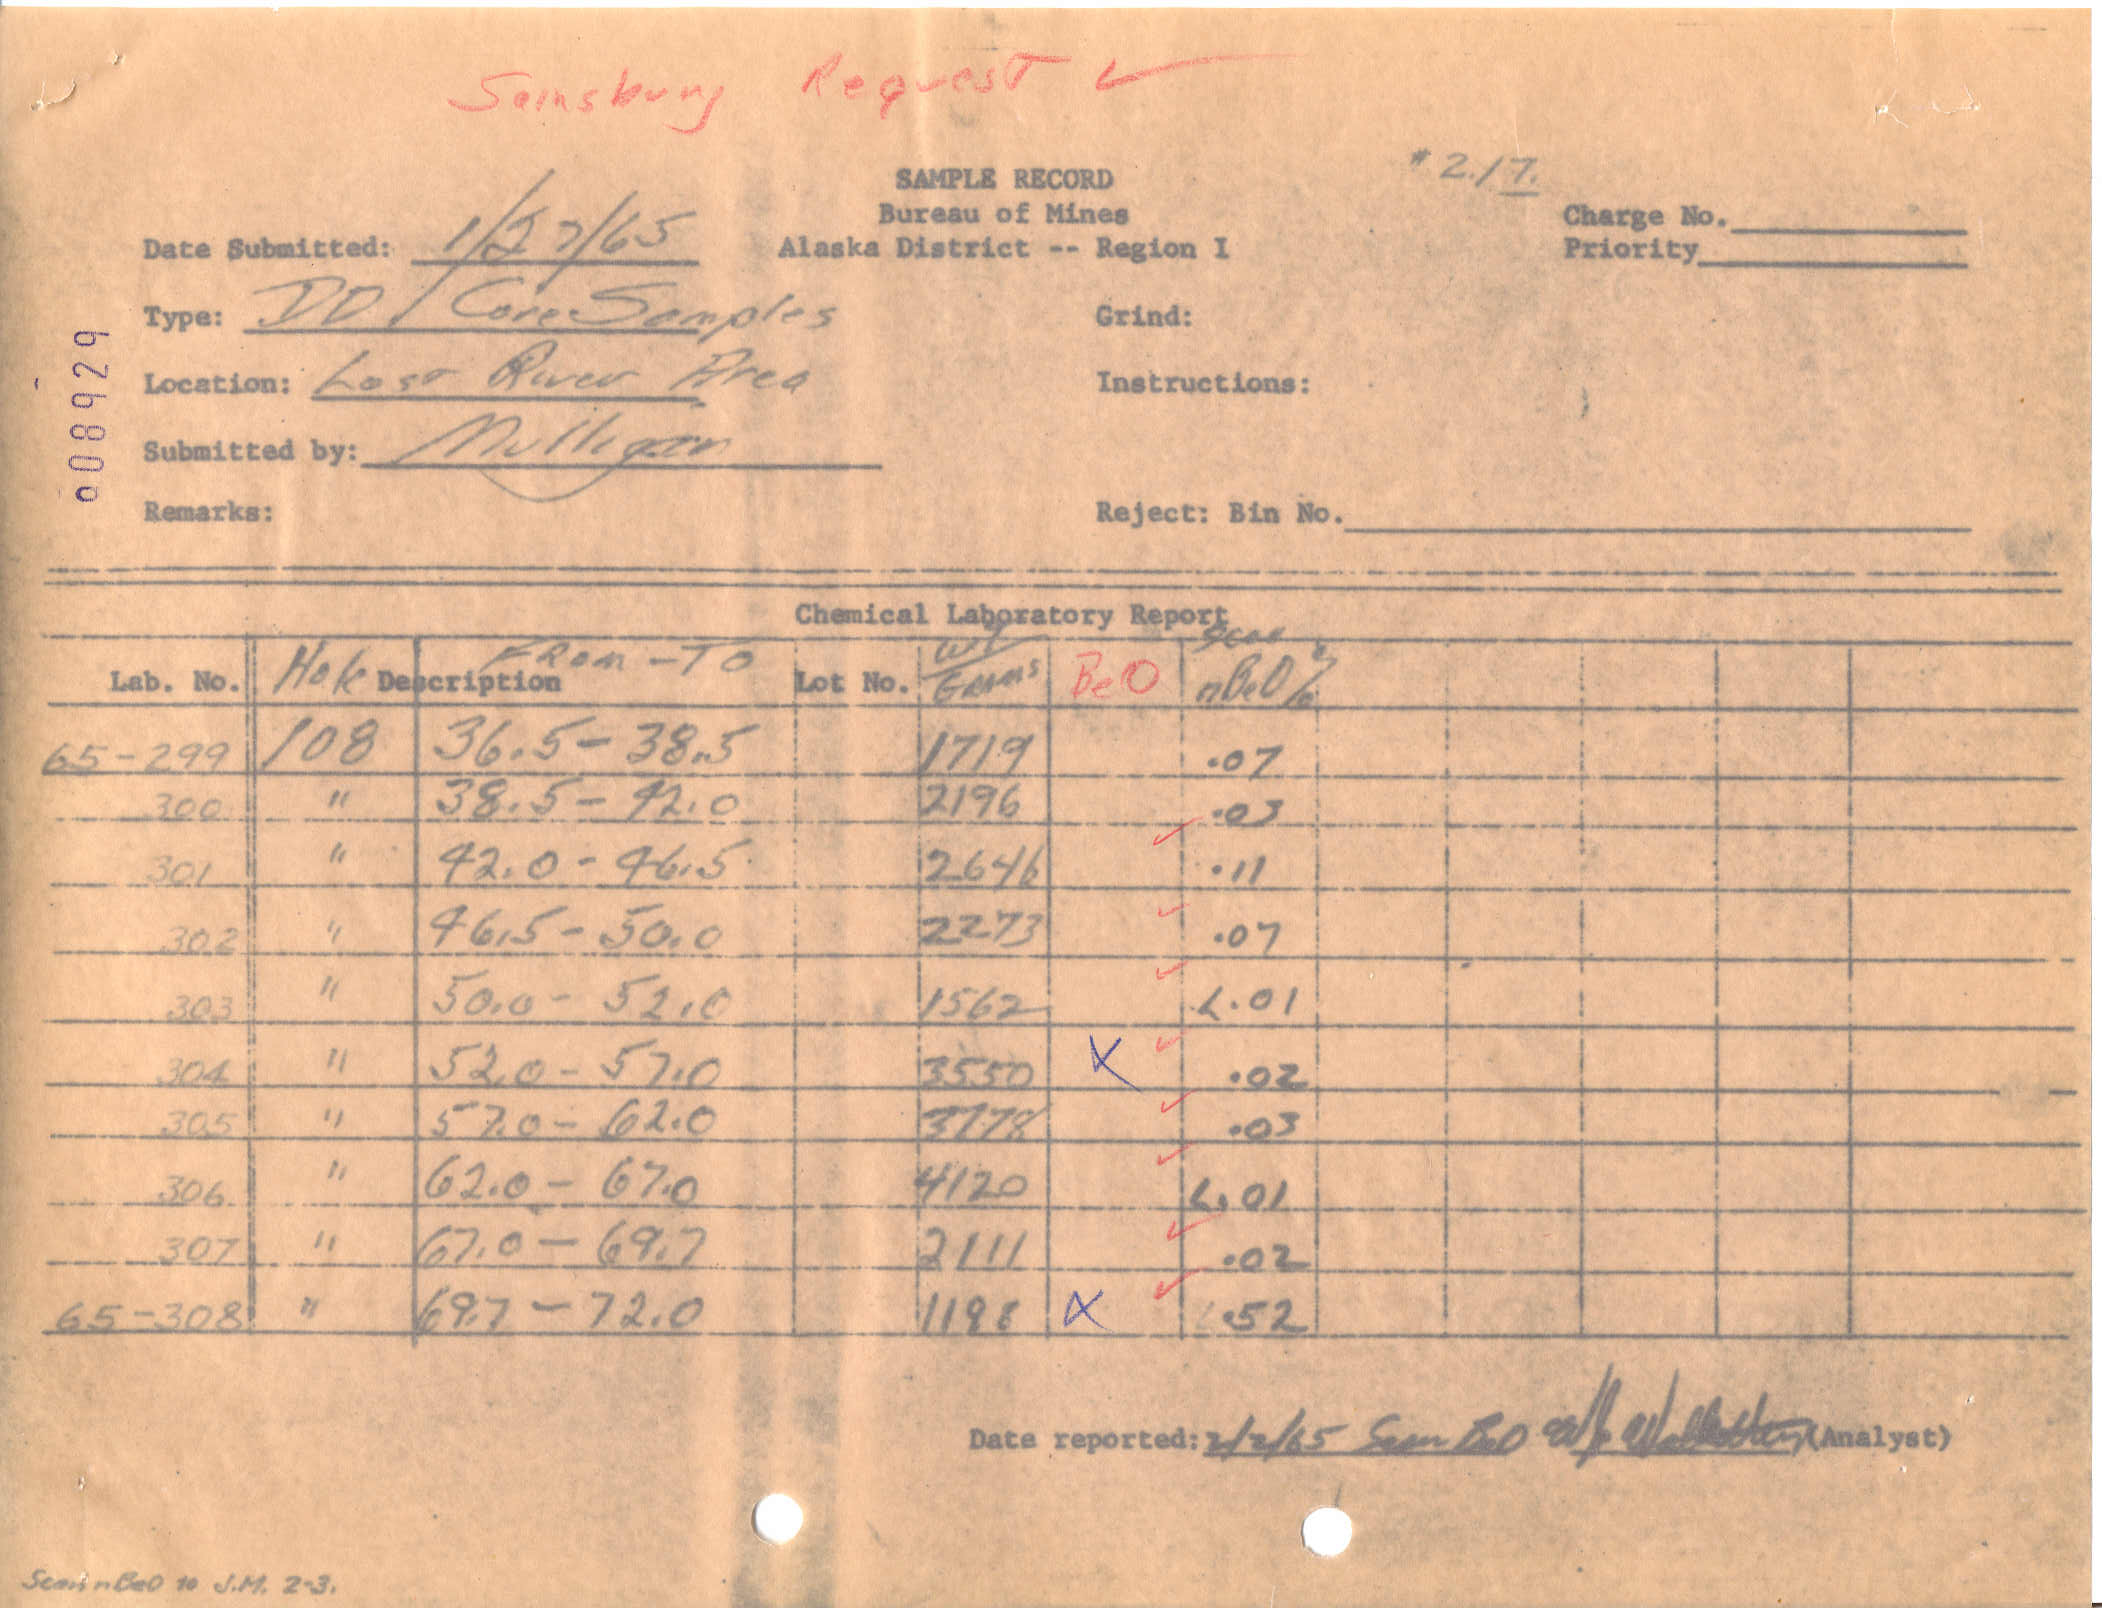 Sainsbury Request ✓
# 2.17.
SAMPLE RECORD
Bureau of Mines
Alaska District -- Region I
Charge No.
Priority
Date Submitted: 1/27/65
Type: DD Core Samples
Grind:
Location: Lost River Area
Instructions:
Submitted by: Mulligan
Remarks:
Reject: Bin No.
008929
Chemical Laboratory Report
Lab. No. Hole Description From - To Lot No. Wt Grams BeO Scan nBeO %
65-299 108 36.5 - 38.5 1719 .07
300 " 38.5 - 42.0 2196 .03
301 " 42.0 - 46.5 2646 ✓ .11
302 " 46.5 - 50.0 2273 ✓ .07
303 " 50.0 - 52.0 1562 ✓ L.01
304 " 52.0 - 57.0 3550 X ✓ .02
305 " 57.0 - 62.0 3778 ✓ .03
306 " 62.0 - 67.0 4120 ✓ L.01
307 " 67.0 - 69.7 2111 ✓ .02
65-308 " 69.7 - 72.0 1198 X ✓ .52
Date reported: 2/2/65 Scan BeO (Analyst)
Scan nBeO to J.M. 2-3.